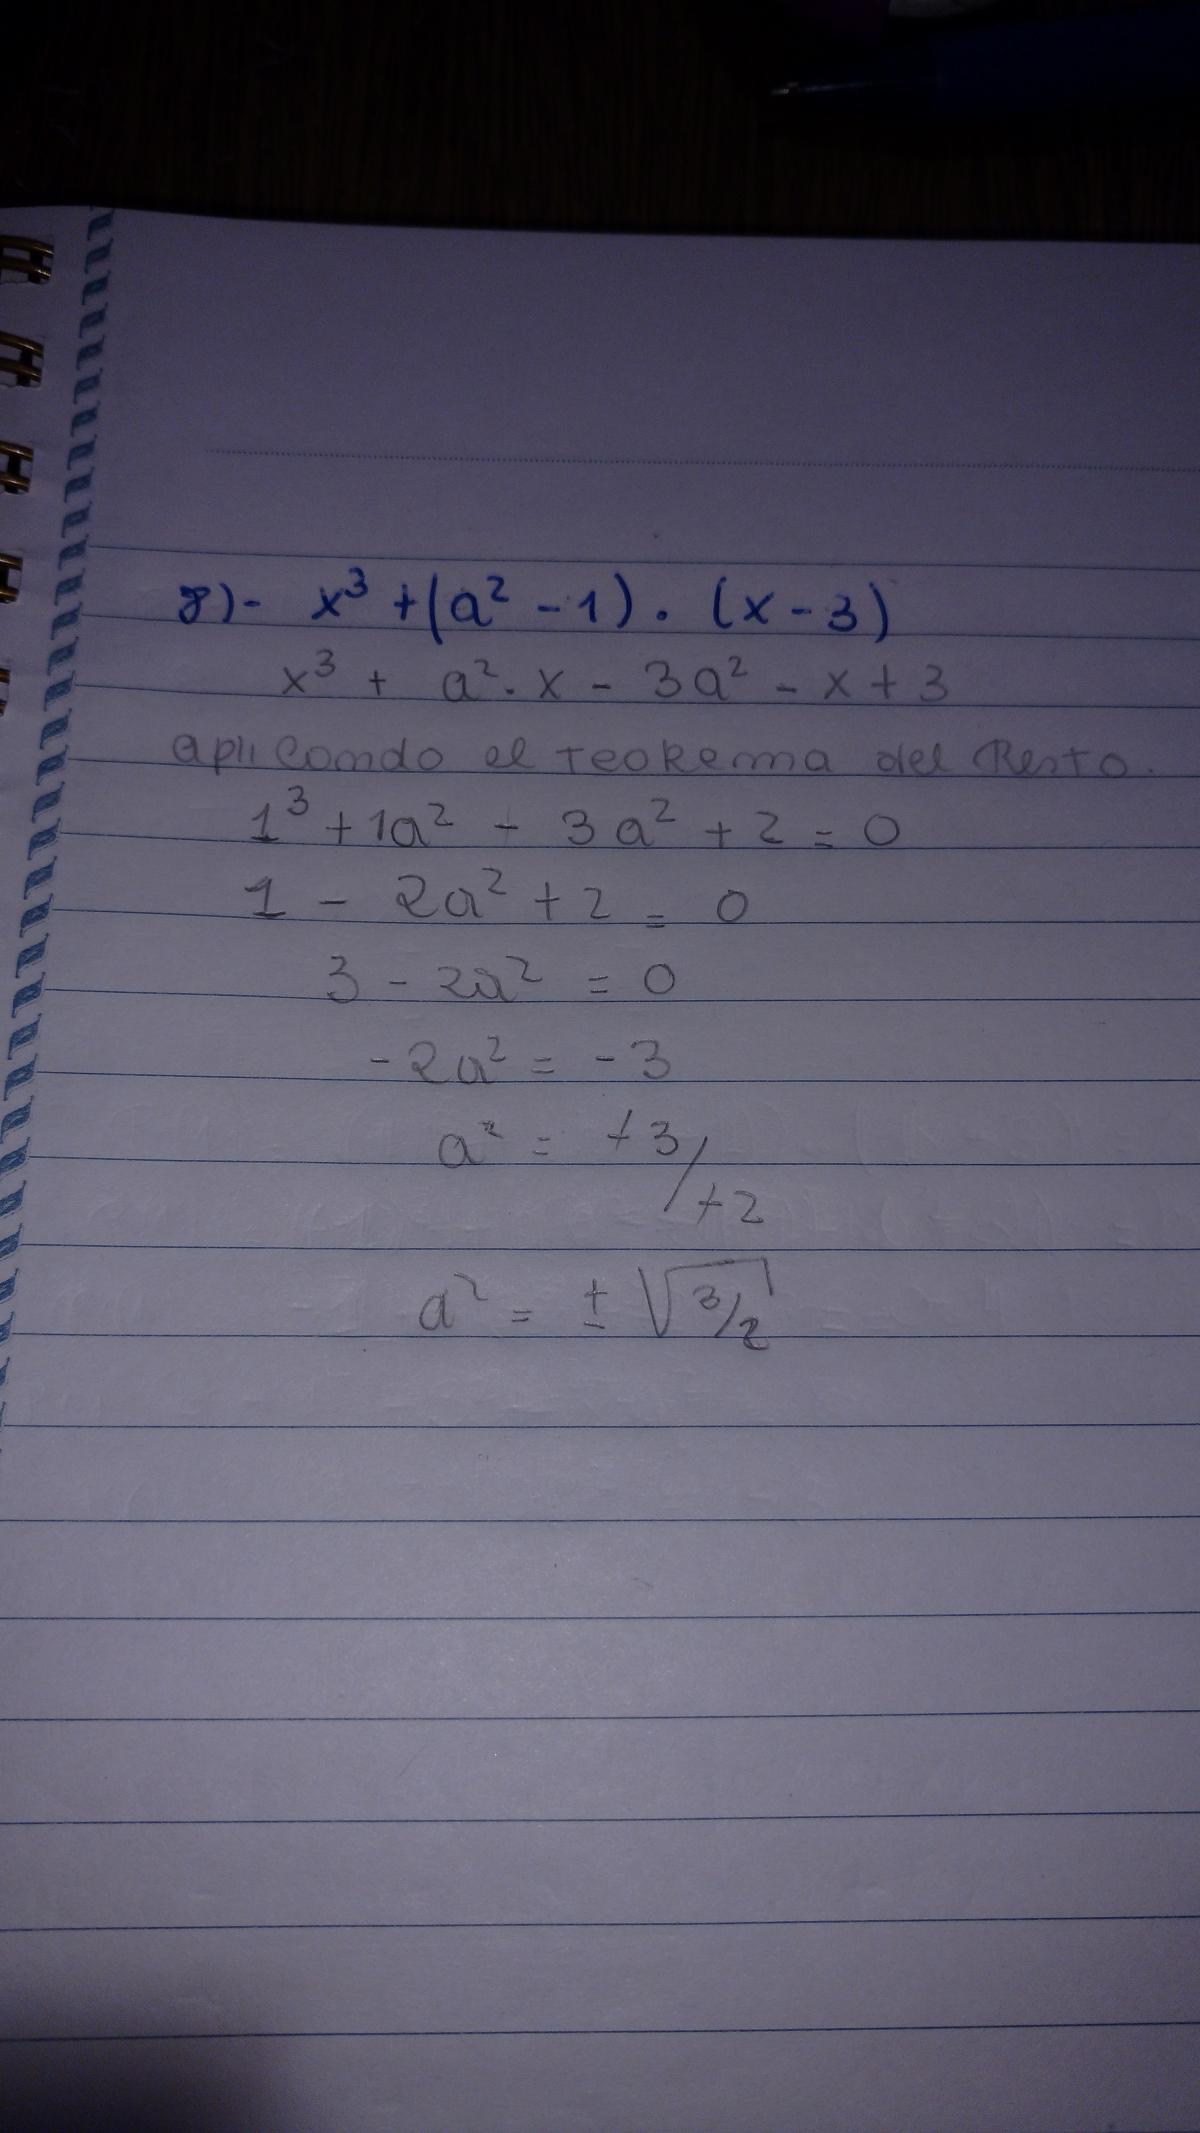 8)- x³ + (a² - 1) . (x - 3)
x³ + a² . x - 3a² - x + 3
aplicando el teorema del Resto.
1³ + 1a² - 3a² + 2 = 0
1 - 2a² + 2 = 0
3 - 2a² = 0
-2a² = -3
a² = +3/+2
a² = ± √3/2